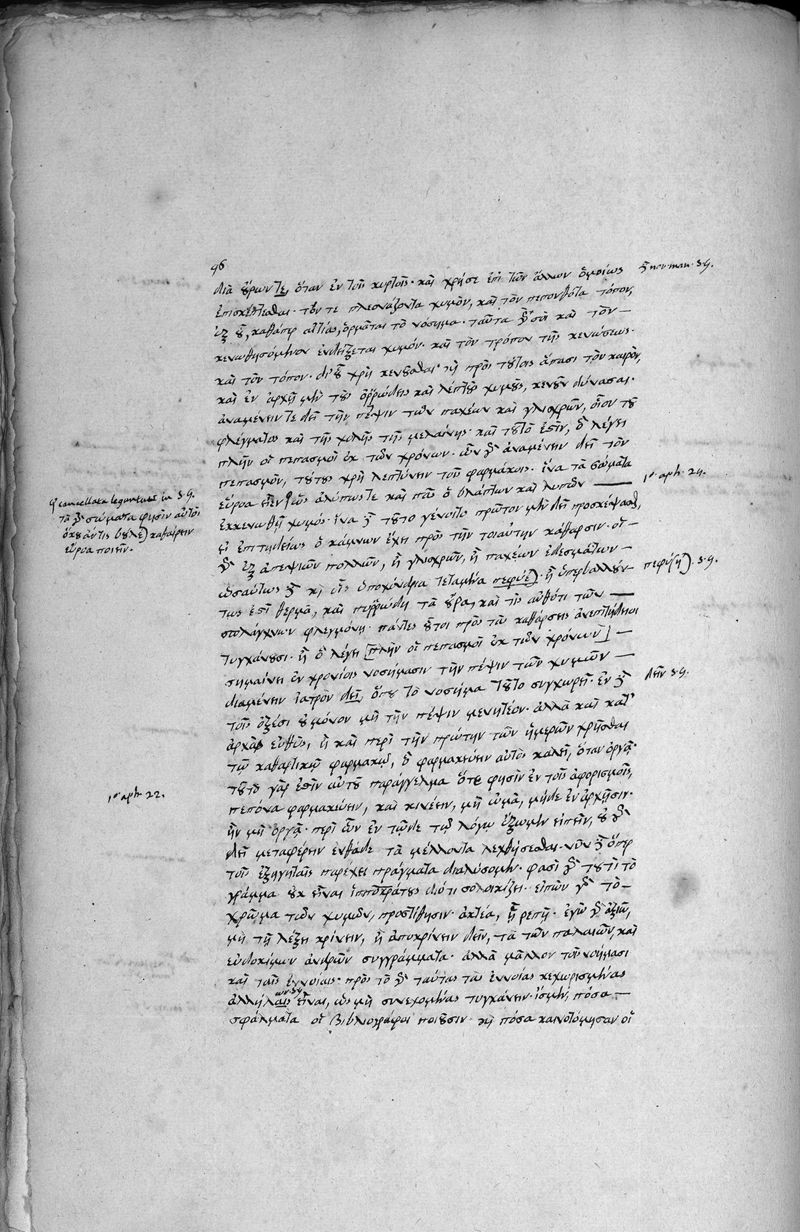 96
διὰ οὔρων τε, ὅταν ἐν τοῖς κυρτοῖς· καὶ χρή σε ἐπὶ τῶν ἄλλων ὁμοίως
ἐπισκέπτεσθαι· τόν τε πλεονάζοντα χυμὸν, καὶ τὸν πεπονθότα τόπον,
ἐξ οὗ, καθάπερ αἰτίας, ὁρμᾶται τὸ νόσημα· ταῦτα γὰρ σοὶ καὶ τὸν
κενωθησόμενον ἐνδείξεται χυμόν· καὶ τὸν τρόπον τῆς κενώσεως·
καὶ τὸν τόπον· δι' οὗ χρὴ κενοῦσθαι καὶ πρὸς τούτοις ἅπασι τὸν καιρόν,
καὶ ἐν ἀρχῇ μὲν τοὺς ὀῤῥώδεις καὶ λεπτοὺς χυμοὺς, κενοῦν δύνασαι·
ἀναμένειν τε δεῖ τὴν πέψιν τῶν παχέων καὶ γλισχρῶν, οἷον τοῦ
φλέγματος καὶ τῆς χολῆς τῆς μελαίνης· καὶ τοῦτό ἐστιν, ὃ λέγει
πλὴν οἱ πεπασμοὶ ἐκ τῶν χρόνων· ὧν γὰρ ἀναμένειν δεῖ τὸν
πεπασμὸν, τούτους χρὴ λεπτύνειν τοῖς φαρμάκοις· ἵνα τὰ σώματα
εὔροα εἴη ὡς ἀλύπως τε καὶ πᾶς ὁ βλάπτων καὶ λυπῶν
ἐκκενωθῇ χυμός· ἵνα δὲ τοῦτο γένοιτο πρῶτον μὲν δεῖ προσκέψασθαι,
εἰ ἐπιτηδείως ὁ κάμνων ἔχει πρὸς τὴν τοιαύτην κάθαρσιν· οἱ
γὰρ ἐξ ἀπεψιῶν πολλῶν, ἢ γλισχρῶν, ἢ παχέων ἐδεσμάτων
ὡσαύτως δὲ καὶ οἷς ὑποχόνδρια τεταμένα πέφυκε· ἢ ὑπερβαλλόν-
τως ἐστὶ θερμὰ, καὶ πυῤῥώδη τὰ οὖρα, καὶ τις αὐθότι τῶν
σπλάγχνων φλεγμονή· πάντες οὗτοι πρὸς τὰς καθάρσεις ἀνεπιτήδειοι
τυγχάνουσι· ἢ ὃ λέγει [πλὴν οἱ πεπασμοὶ ἐκ τῶν χρόνων]
σημαίνει ἐν χρονίοις νοσήμασιν τὴν πέψιν τῶν χυμῶν
διαμένειν ἰατρὸν δεῖ, ὅπου τὸ νόσημα τοῦτο συγχωρεῖ· ἐν δὲ
τοῖς ὀξέσι οὐ μόνον μὴ τὴν πέψιν μενητέον· ἀλλὰ καὶ κατ'
ἀρχὰς εὐθὺς, ἢ καὶ περὶ τὴν πρώτην τῶν ἡμερῶν χρῆσθαι
τῷ καθαρτικῷ φαρμάκῳ, ὃ φαρμακεύειν αὐτὸς καλεῖ, ὅταν ὀργᾷ·
τοῦτο γάρ ἐστιν αὐτοῦ παράγγελμα ὅτε φησὶν ἐν τοῖς ἀφορισμοῖς,
πέπονα φαρμακεύειν, καὶ κινέειν, μὴ ὠμὰ, μηδὲ ἐν ἀρχῇσιν·
ἢν μὴ ὀργᾷ· περὶ ὧν ἐν τῷδε τῷ λόγῳ ἕξομεν εἰπεῖν, οὐ γὰρ
δεῖ μεταφέρειν ἐνθάδε τὰ μέλλοντα λεχθήσεσθαι· νῦν δὲ ὅπερ
τοῖς ἐξηγηταῖς παρέχει πράγματα διαλύσομεν· φασὶ γὰρ τουτὶ τὸ
γράμμα οὐκ εἶναι ἱπποκράτους διότι σολοικίζει· εἰπὼν γὰρ τὸ
χρῶμα τῶν χυμῶν, προστίθησιν· ἀκτέα, ᾗ ῥέπῃ· ἐγὼ γὰρ ἀξιῶ,
μὴ τῇ λέξει κρίνειν, ἢ ἀποκρίνειν δεῖν, τὰ τῶν παλαιῶν, καὶ
εὐδοκίμων ἀνδρῶν συγγράμματα· ἀλλὰ μᾶλλον τοῖς νοήμασι
καὶ ταῖς ἐννοίαις· πρὸς τὸ γὰρ ταύτας τὰς ἐννοίας κεχωρισμένας
ἀλλήλαις εἶναι, ὡς μὴ συνεχομένας τυγχάνειν· ἴσμεν, πόσα
σφάλματα οἱ βιβλιογράφοι ποιοῦσιν· καὶ πόσα καινοτόμησαν οἱ
non man. 39.
1. aph. 24.
39.
δεῖν 39.
cancellata leguntur in 39.
τὰ γὰρ σώματα φησὶν αὐτὸς
ὅκου ἄν τις βούλεται καθαίρειν
εὔροα ποιεῖν.
1. aph. 22.